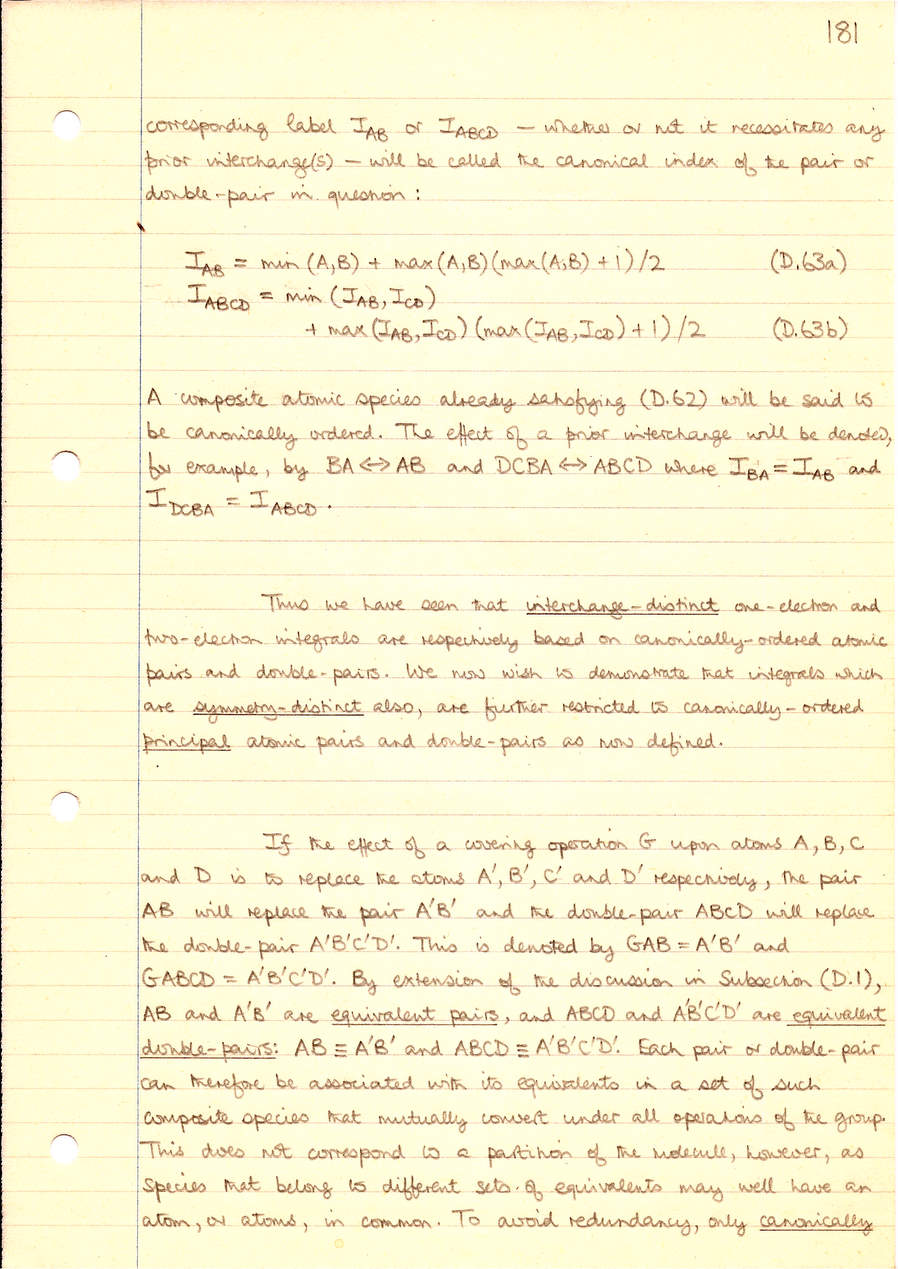 181
corresponding label I_AB or I_ABCD — whether or not it necessitates any
prior interchange(s) — will be called the canonical index of the pair or
double-pair in question :
I_AB = min (A,B) + max (A,B)(max(A,B) + 1)/2 (D.63a)
I_ABCD = min (I_AB, I_CD)
+ max (I_AB, I_CD) (max (I_AB, I_CD) + 1)/2 (D.63b)
A composite atomic species already satisfying (D.62) will be said to
be canonically ordered. The effect of a prior interchange will be denoted,
for example, by BA ⟷ AB and DCBA ⟷ ABCD where I_BA = I_AB and
I_DCBA = I_ABCD .
Thus we have seen that interchange-distinct one-electron and
two-electron integrals are respectively based on canonically-ordered atomic
pairs and double-pairs. We now wish to demonstrate that integrals which
are symmetry-distinct also, are further restricted to canonically-ordered
principal atomic pairs and double-pairs as now defined.
If the effect of a covering operation G upon atoms A, B, C
and D is to replace the atoms A', B', C' and D' respectively, the pair
AB will replace the pair A'B' and the double-pair ABCD will replace
the double-pair A'B'C'D'. This is denoted by GAB = A'B' and
GABCD = A'B'C'D'. By extension of the discussion in Subsection (D.1),
AB and A'B' are equivalent pairs, and ABCD and A'B'C'D' are equivalent
double-pairs: AB ≡ A'B' and ABCD ≡ A'B'C'D'. Each pair or double-pair
can therefore be associated with its equivalents in a set of such
composite species that mutually convert under all operations of the group.
This does not correspond to a partition of the molecule, however, as
species that belong to different sets of equivalents may well have an
atom, or atoms, in common. To avoid redundancy, only canonically